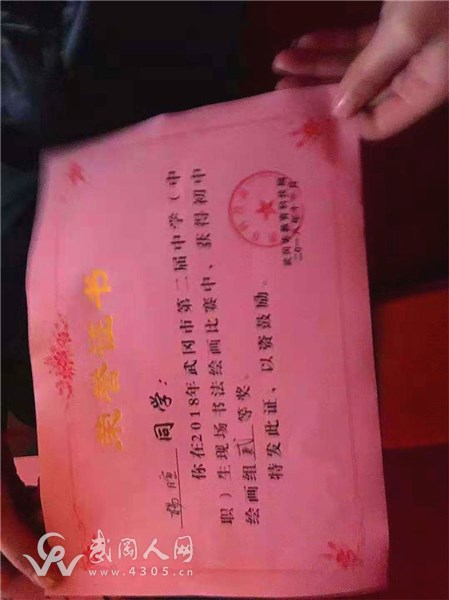 荣誉证书
同学：
你在2018年武冈市第二届中学（中
职）生现场书法绘画比赛中、获得初中
绘画组 贰 等奖。
特发此证、以资鼓励。
武冈人网
www.4305.cn